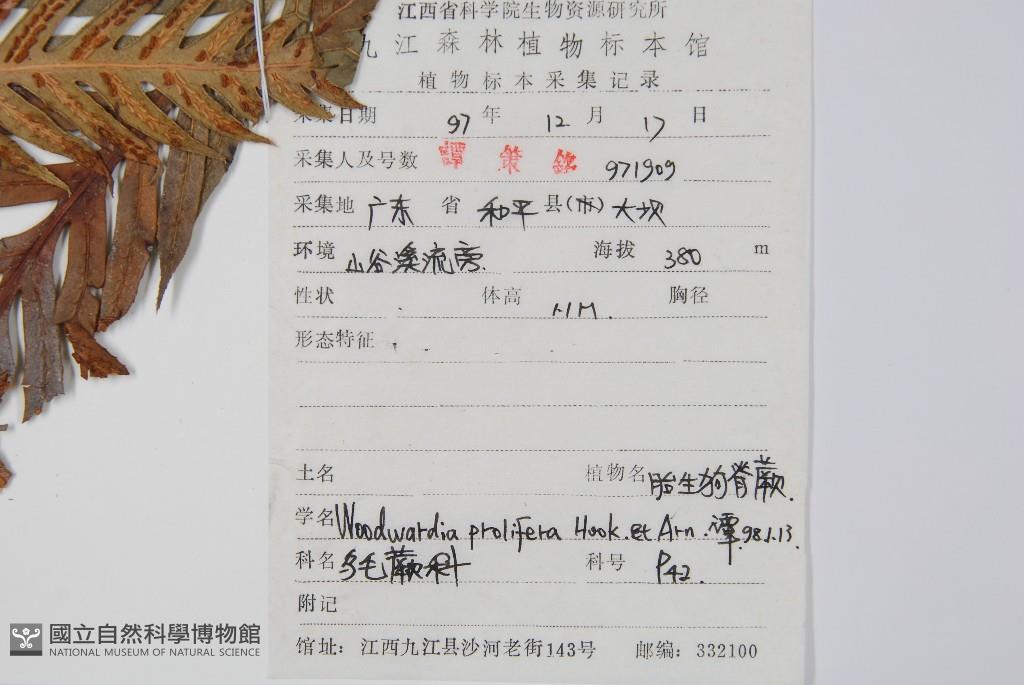 江西省科学院生物资源研究所
九江森林植物标本馆
植物标本采集记录
采集日期 97 年 12 月 17 日
采集人及号数 譚策銘 971909
采集地 广东 省 和平 县(市) 大坝
环境 山谷溪流旁. 海拔 380 m
性状 体高 1.1M. 胸径
形态特征
土名 植物名 胎生狗脊蕨.
学名 Woodwardia prolifera Hook. et Arn. 谭. 98.1.13.
科名 乌毛蕨科 科号 P42.
附记
馆址：江西九江县沙河老街143号 邮编：332100
國立自然科學博物館
NATIONAL MUSEUM OF NATURAL SCIENCE